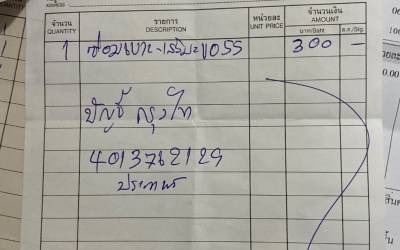 ADDRESS
จำนวน รายการ หน่วยละ จำนวนเงิน
QUANTITY DESCRIPTION UNIT PRICE AMOUNT
บาท/Baht ส.ต./Stg.
1 ซ่อมเบาะ-เสริมเบอร์ 300 —
บัญชี กรุงไทย
4013762129
ประเทพ